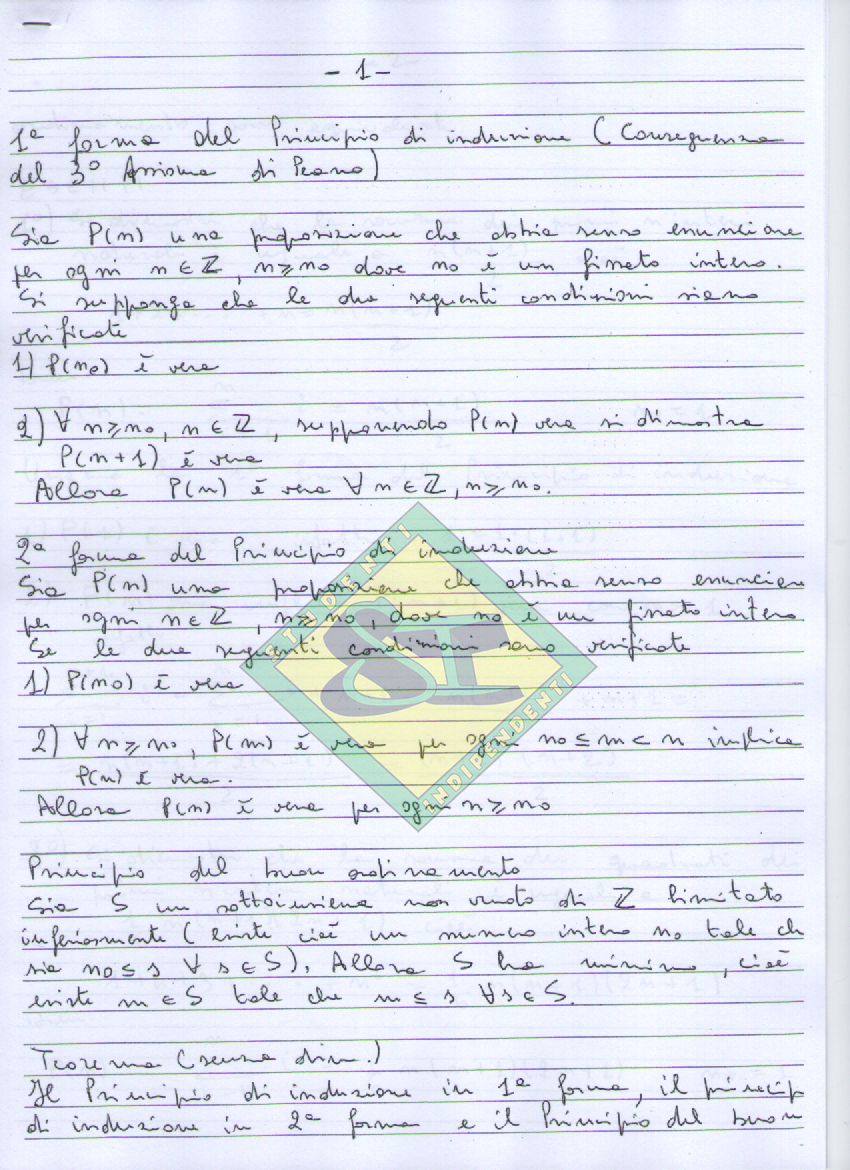 - 1 -
1ª forma del Principio di induzione (Conseguenza
del 3° Assioma di Peano)
Sia P(n) una proposizione che abbia senso enunciare
per ogni n ∈ ℤ, n ⩾ n0 dove n0 è un fissato intero.
Si supponga che le due seguenti condizioni siano
verificate
1) P(n0) è vera
2) ∀ n ⩾ n0, n ∈ ℤ, supponendo P(n) vera si dimostra
P(n+1) è vera
Allora P(n) è vera ∀ n ∈ ℤ, n ⩾ n0.
2ª forma del Principio di induzione
Sia P(n) una proposizione che abbia senso enunciare
per ogni n ∈ ℤ, n ⩾ n0, dove n0 è un fissato intero.
Se le due seguenti condizioni sono verificate
1) P(n0) è vera
2) ∀ n ⩾ n0, P(m) è vera per ogni n0 ≤ m < n implica
P(n) è vera.
Allora P(n) è vera per ogni n ⩾ n0
STUDENTI
INDIPENDENTI
Principio del buon ordinamento
Sia S un sottoinsieme non vuoto di ℤ limitato
inferiormente (esiste cioè un numero intero n0 tale ch
sia n0 ≤ s ∀ s ∈ S). Allora S ha minimo, cioè
esiste m ∈ S tale che m ≤ s ∀ s ∈ S.
Teorema (senza dim.)
Il Principio di induzione in 1ª forma, il princip
di induzione in 2ª forma e il Principio del buon